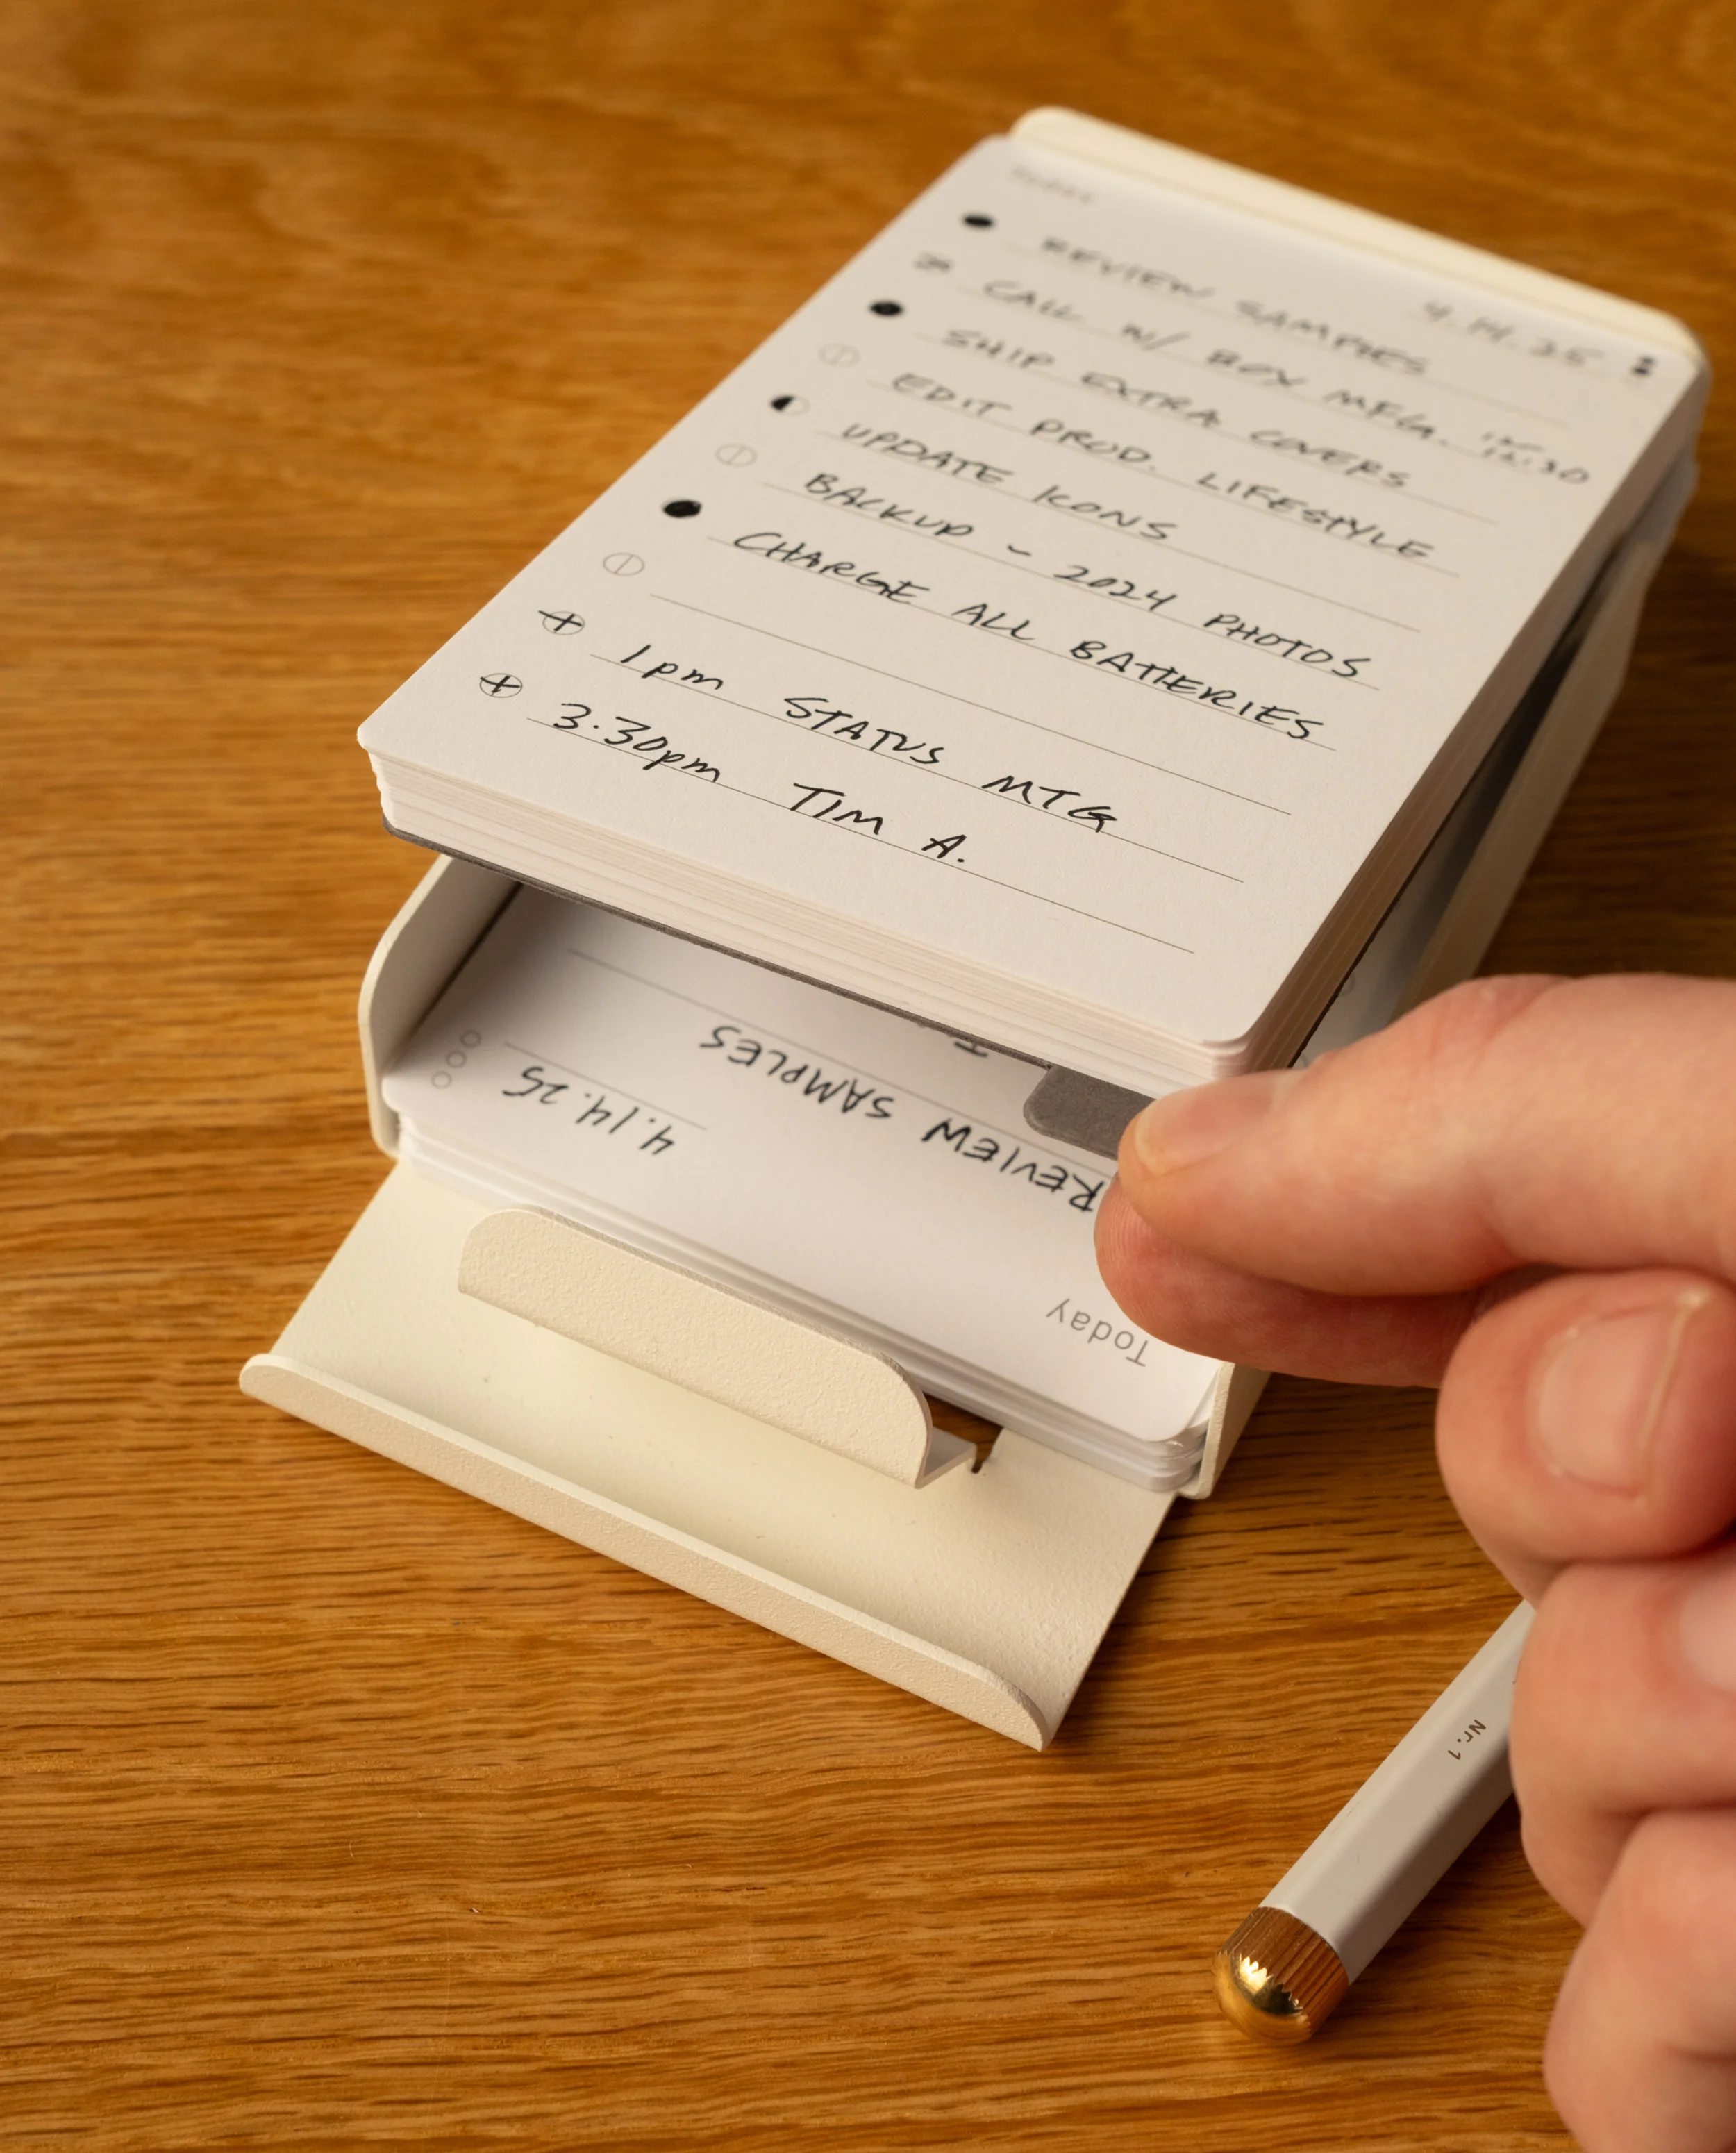 Today
4.14.25
REVIEW SAMPLES
CALL W/ BOX MFG. 12:30
SHIP EXTRA COVERS
EDIT PROD. LIFESTYLE
UPDATE ICONS
BACKUP - 2024 PHOTOS
CHARGE ALL BATTERIES
1pm STATUS MTG
3.30pm TIM A.
Today
4.14.25
REVIEW SAMPLES
Nr.1